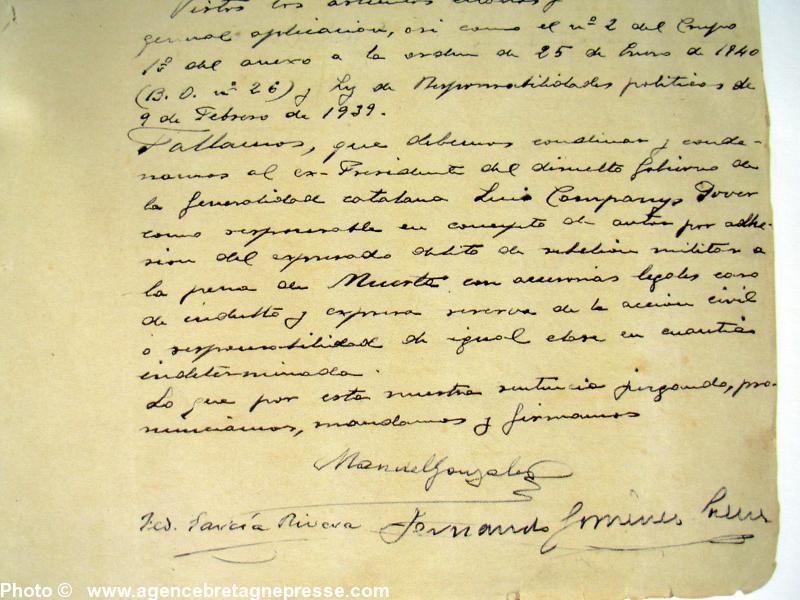 Vistos los artículos citados y
general aplicación, así como el nº 2 del Grupo
1º del anexo a la orden de 25 de Enero de 1940
(B. O. nº 26) y Ley de Responsabilidades políticas de
9 de Febrero de 1939.
Fallamos, que debemos condenar y conde-
namos al ex-Presidente del disuelto Gobierno de
la Generalidad catalana Luis Companys Jover
como responsable en concepto de autor por adhe-
sión del expresado delito de rebelión militar a
la pena de Muerte con accesorias legales caso
de indulto y expresa reserva de la acción civil
o responsabilidad de igual clase en cuantía
indeterminada.
Lo que por esta nuestra sentencia juzgando, pro-
nunciamos, mandamos y firmamos
Manuel Gonzalez
Fed. García Rivera Fernando Giménez
Photo © www.agencebretagnepresse.com